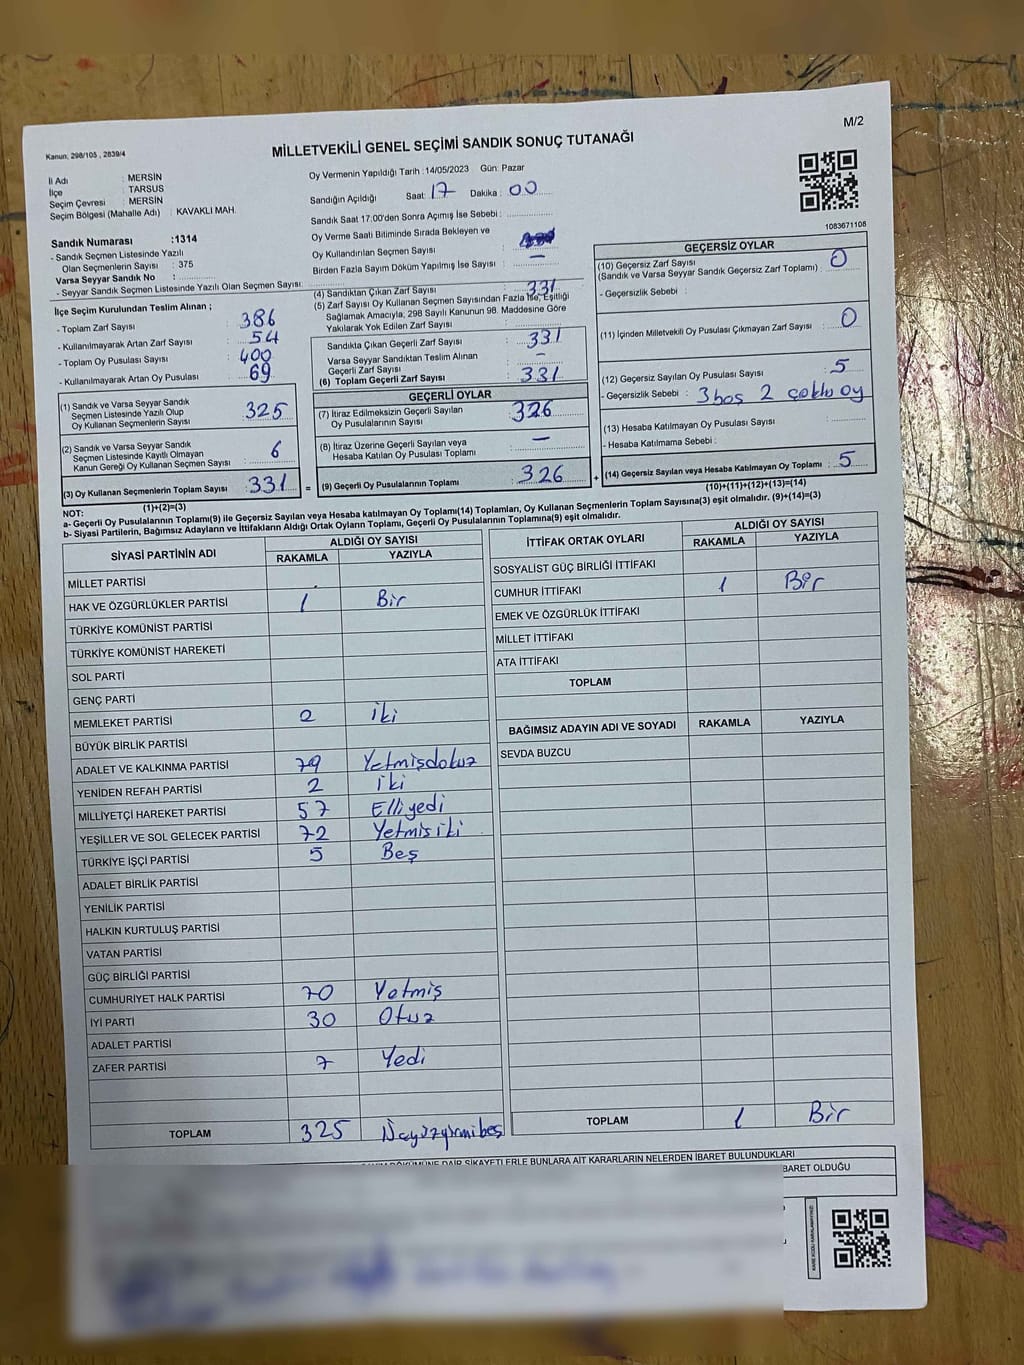 M/2
Kanun, 298/105 , 2839/4
MİLLETVEKİLİ GENEL SEÇİMİ SANDIK SONUÇ TUTANAĞI
İl Adı : MERSİN
İlçe : TARSUS
Seçim Çevresi : MERSİN
Seçim Bölgesi (Mahalle Adı) : KAVAKLI MAH.
Oy Vermenin Yapıldığı Tarih :14/05/2023 Gün: Pazar
Sandığın Açıldığı Saat: 17 Dakika : 00
Sandık Saat 17:00'den Sonra Açımış İse Sebebi :
Oy Verme Saati Bitiminde Sırada Bekleyen ve
Oy Kullandırılan Seçmen Sayısı : —
Birden Fazla Sayım Döküm Yapılmış İse Sayısı :
1083671108
Sandık Numarası :1314
- Sandık Seçmen Listesinde Yazılı
Olan Seçmenlerin Sayısı : 375
Varsa Seyyar Sandık No :
- Seyyar Sandık Seçmen Listesinde Yazılı Olan Seçmen Sayısı:
İlçe Seçim Kurulundan Teslim Alınan ;
- Toplam Zarf Sayısı : 386
- Kullanılmayarak Artan Zarf Sayısı : 54
- Toplam Oy Pusulası Sayısı : 400
- Kullanılmayarak Artan Oy Pusulası : 69
(1) Sandık ve Varsa Seyyar Sandık
Seçmen Listesinde Yazılı Olup
Oy Kullanan Seçmenlerin Sayısı : 325
(2) Sandık ve Varsa Seyyar Sandık
Seçmen Listesinde Kayıtlı Olmayan
Kanun Gereği Oy Kullanan Seçmen Sayısı : 6
(3) Oy Kullanan Seçmenlerin Toplam Sayısı : 331
(1)+(2)=(3)
(4) Sandıktan Çıkan Zarf Sayısı : 331
(5) Zarf Sayısı Oy Kullanan Seçmen Sayısından Fazla İse, Eşitliği
Sağlamak Amacıyla, 298 Sayılı Kanunun 98. Maddesine Göre
Yakılarak Yok Edilen Zarf Sayısı :
Sandıkta Çıkan Geçerli Zarf Sayısı : 331
Varsa Seyyar Sandıktan Teslim Alınan
Geçerli Zarf Sayısı : —
(6) Toplam Geçerli Zarf Sayısı : 331
GEÇERLİ OYLAR
(7) İtiraz Edilmeksizin Geçerli Sayılan
Oy Pusulalarının Sayısı : 326
(8) İtiraz Üzerine Geçerli Sayılan veya
Hesaba Katılan Oy Pusulası Toplamı : —
= (9) Geçerli Oy Pusulalarının Toplamı : 326 +
GEÇERSİZ OYLAR
(10) Geçersiz Zarf Sayısı
(Sandık ve Varsa Seyyar Sandık Geçersiz Zarf Toplamı) : 0
- Geçersizlik Sebebi :
(11) İçinden Milletvekili Oy Pusulası Çıkmayan Zarf Sayısı : 0
(12) Geçersiz Sayılan Oy Pusulası Sayısı : 5
- Geçersizlik Sebebi : 3 boş 2 çoklu oy
(13) Hesaba Katılmayan Oy Pusulası Sayısı :
- Hesaba Katılmama Sebebi :
(14) Geçersiz Sayılan veya Hesaba Katılmayan Oy Toplamı : 5
(10)+(11)+(12)+(13)=(14)
NOT:
a- Geçerli Oy Pusulalarının Toplamı(9) ile Geçersiz Sayılan veya Hesaba katılmayan Oy Toplamı(14) Toplamları, Oy Kullanan Seçmenlerin Toplam Sayısına(3) eşit olmalıdır. (9)+(14)=(3)
b- Siyasi Partilerin, Bağımsız Adayların ve İttifakların Aldığı Ortak Oyların Toplamı, Geçerli Oy Pusulalarının Toplamına(9) eşit olmalıdır.
SİYASİ PARTİNİN ADI ALDIĞI OY SAYISI
RAKAMLA YAZIYLA
MİLLET PARTİSİ
HAK VE ÖZGÜRLÜKLER PARTİSİ 1 Bir
TÜRKİYE KOMÜNİST PARTİSİ
TÜRKİYE KOMÜNİST HAREKETİ
SOL PARTİ
GENÇ PARTİ
MEMLEKET PARTİSİ 2 iki
BÜYÜK BİRLİK PARTİSİ
ADALET VE KALKINMA PARTİSİ 79 Yetmişdokuz
YENİDEN REFAH PARTİSİ 2 iki
MİLLİYETÇİ HAREKET PARTİSİ 57 Elliyedi
YEŞİLLER VE SOL GELECEK PARTİSİ 72 Yetmis iki
TÜRKİYE İŞÇİ PARTİSİ 5 Beş
ADALET BİRLİK PARTİSİ
YENİLİK PARTİSİ
HALKIN KURTULUŞ PARTİSİ
VATAN PARTİSİ
GÜÇ BİRLİĞİ PARTİSİ
CUMHURİYET HALK PARTİSİ 70 Yetmiş
İYİ PARTİ 30 Otuz
ADALET PARTİSİ
ZAFER PARTİSİ 7 Yedi
TOPLAM 325 Üçyüzyirmibeş
İTTİFAK ORTAK OYLARI ALDIĞI OY SAYISI
RAKAMLA YAZIYLA
SOSYALİST GÜÇ BİRLİĞİ İTTİFAKI
CUMHUR İTTİFAKI 1 Bir
EMEK VE ÖZGÜRLÜK İTTİFAKI
MİLLET İTTİFAKI
ATA İTTİFAKI
TOPLAM
BAĞIMSIZ ADAYIN ADI VE SOYADI RAKAMLA YAZIYLA
SEVDA BUZCU
TOPLAM 1 Bir
DÖKÜMÜNE DAİR ŞİKAYETLERLE BUNLARA AİT KARARLARIN NELERDEN İBARET BULUNDUKLARI
BARET OLDUĞU